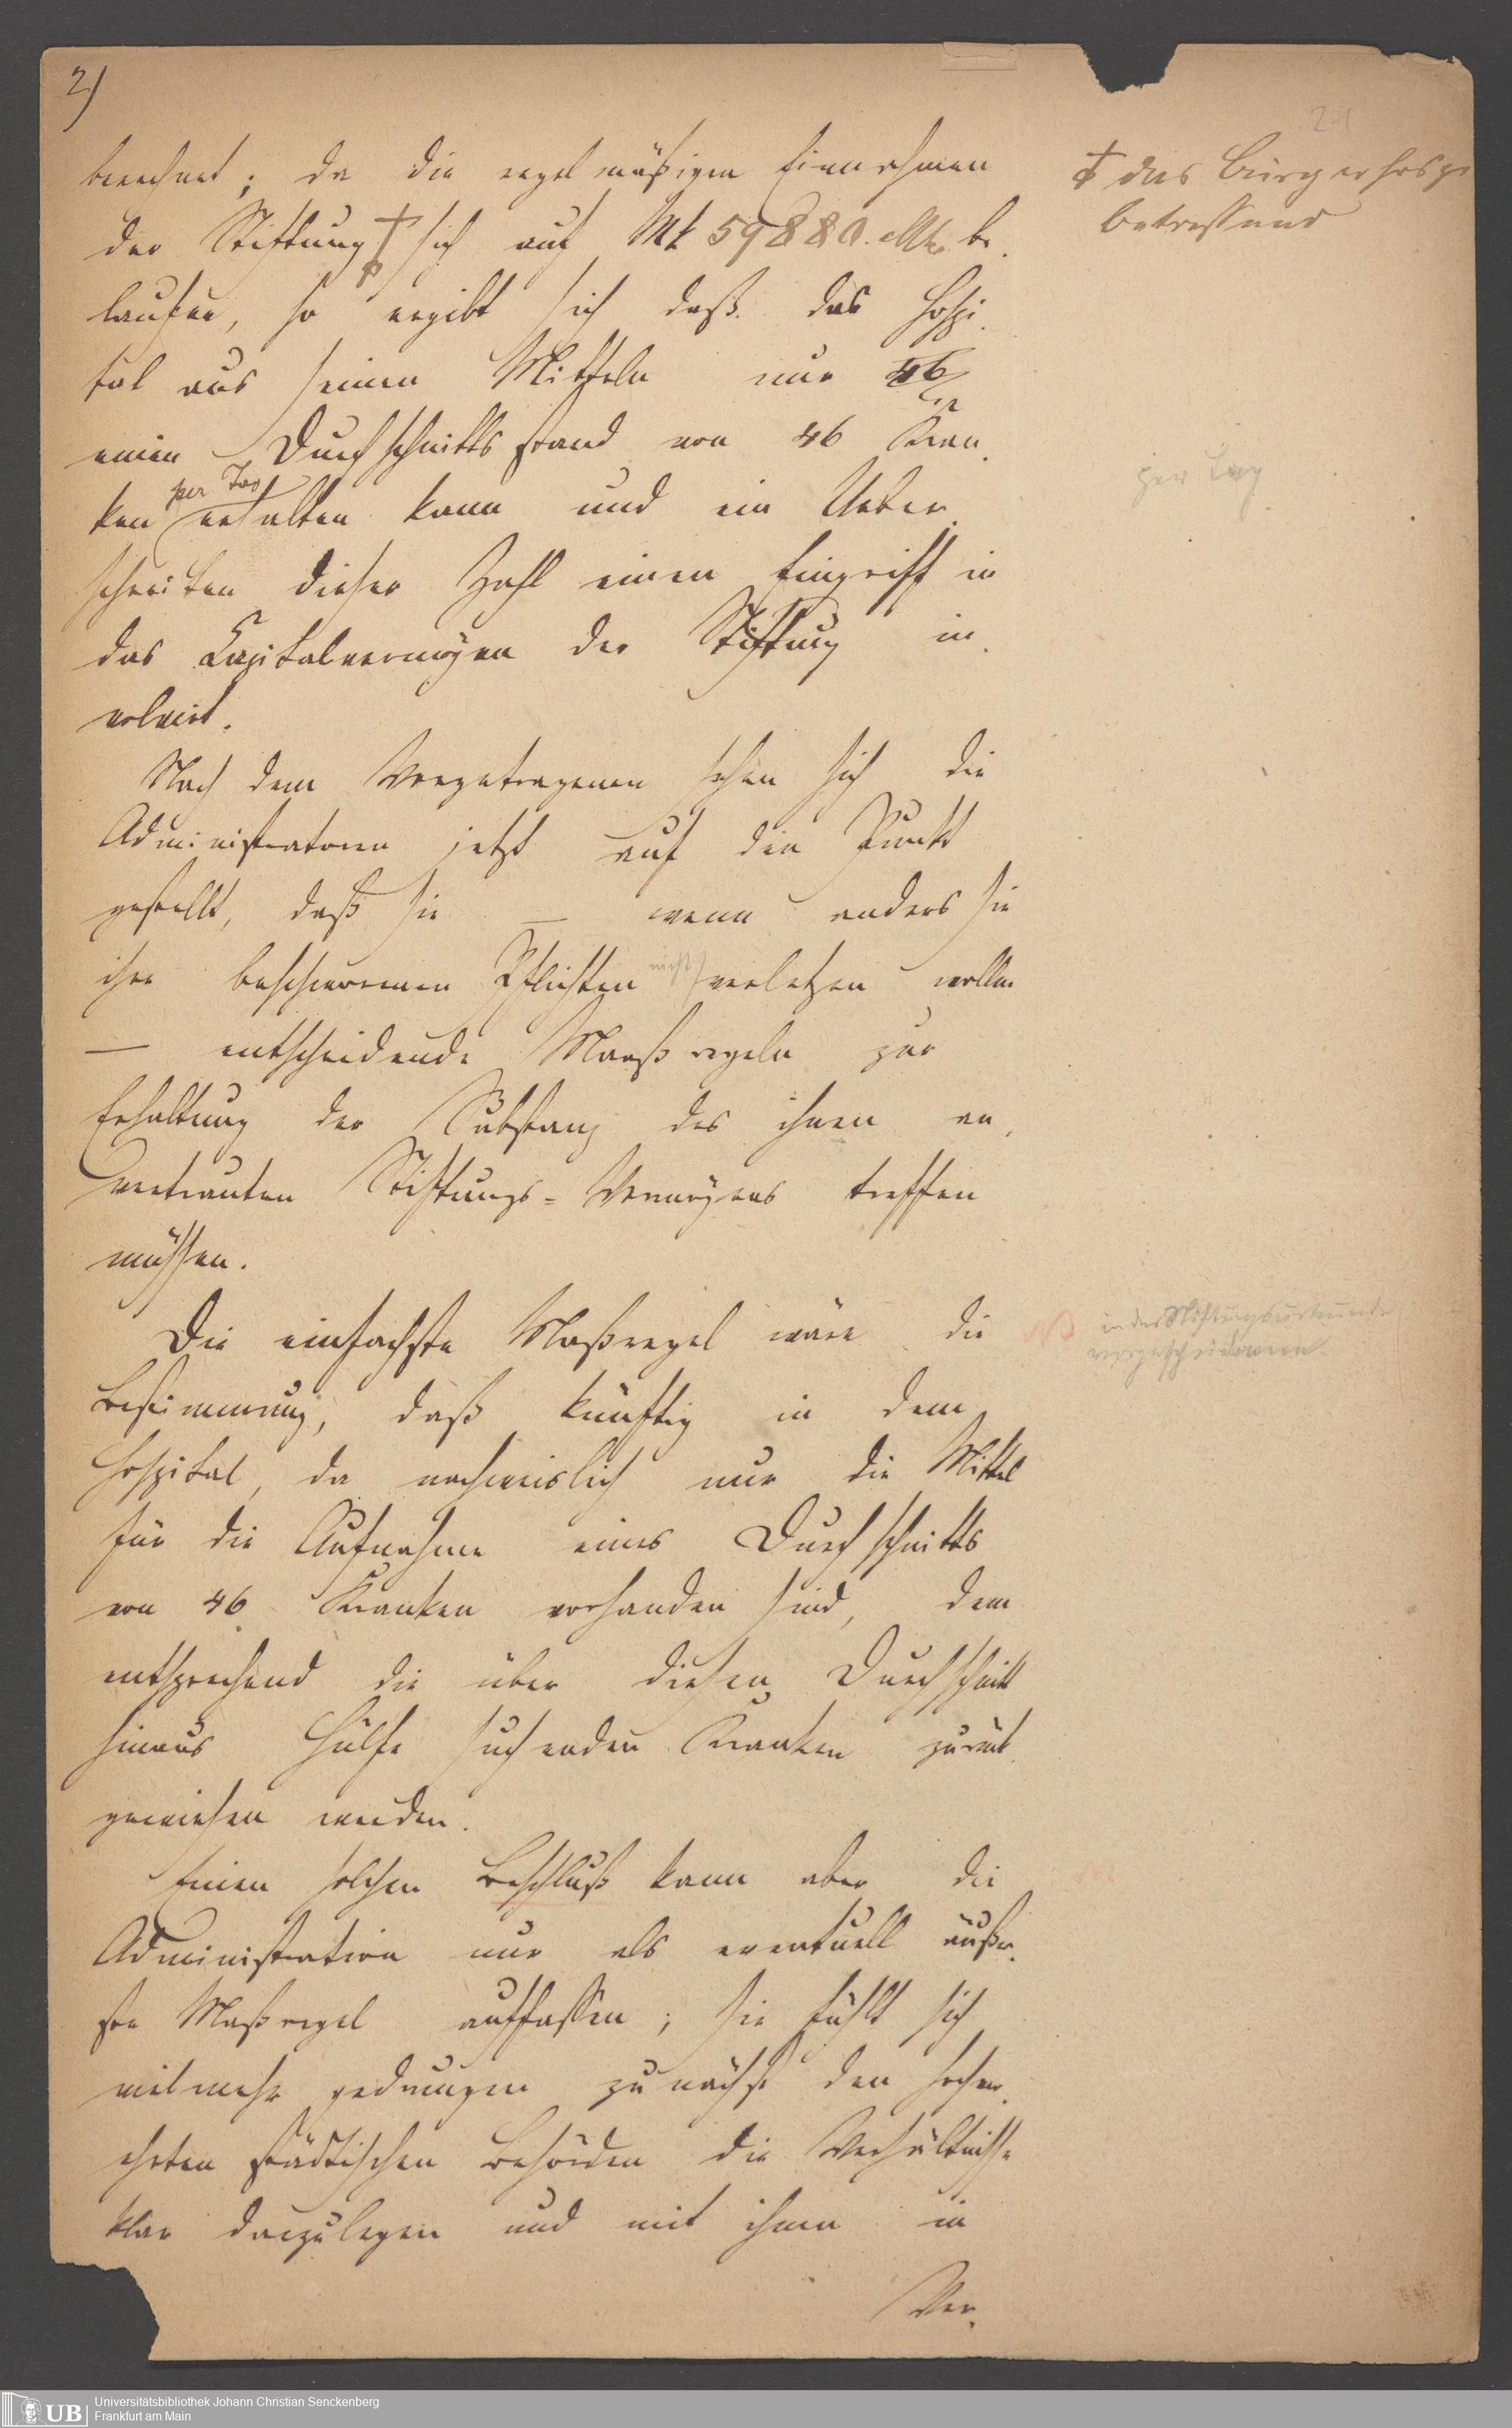 2)
21
berechnet; da die regelmäßigen Einnahmen
der Stiftung sich auf Mk 59880. be
laufen, so ergibt sich daß das Hospi
tal aus seinen Mitteln nur
einen Durchschnittsstand von 46 Kran
ken per Tag erhalten kann und ein Ueber
schreiten dieser Zahl einen Eingriff in
das Capitalvermögen der Stiftung in
volvirt.
Nach dem Vorgetragenen sehen sich die
Administratoren jetzt auf den Punkt
gestellt, daß sie — wenn anders sie
ihre beschworenen Pflichten nicht verletzen wollen
— entscheidende Maaßregeln zur
Erhaltung der Substanz des ihnen an
vertrauten Stiftungs-Vermögens treffen
müssen.
Die einfachste Maßregel wäre die
Bestimmung, daß künftig in dem
Hospital, da nachweislich nur die Mittel
für die Aufnahme eines Durchschnitts
von 46 Kranken vorhanden sind, dem
entsprechend die über diesen Durchschnitt
hinaus Hülfe suchenden Kranken zurück
gewiesen werden.
Einen solchen Beschluß kann aber die
Administration nur als eventuell äußer
ste Maßregel auffassen; sie fühlt sich
vielmehr gedrungen zunächst den hochver
ehrten städtischen Behörden die Verhältnisse
klar darzulegen und mit ihnen in
Ver
das Bürgerhospi
betreffend
per Tag
in der Stiftungsurkunde
vorgeschriebene
UB
Universitätsbibliothek Johann Christian Senckenberg
Frankfurt am Main